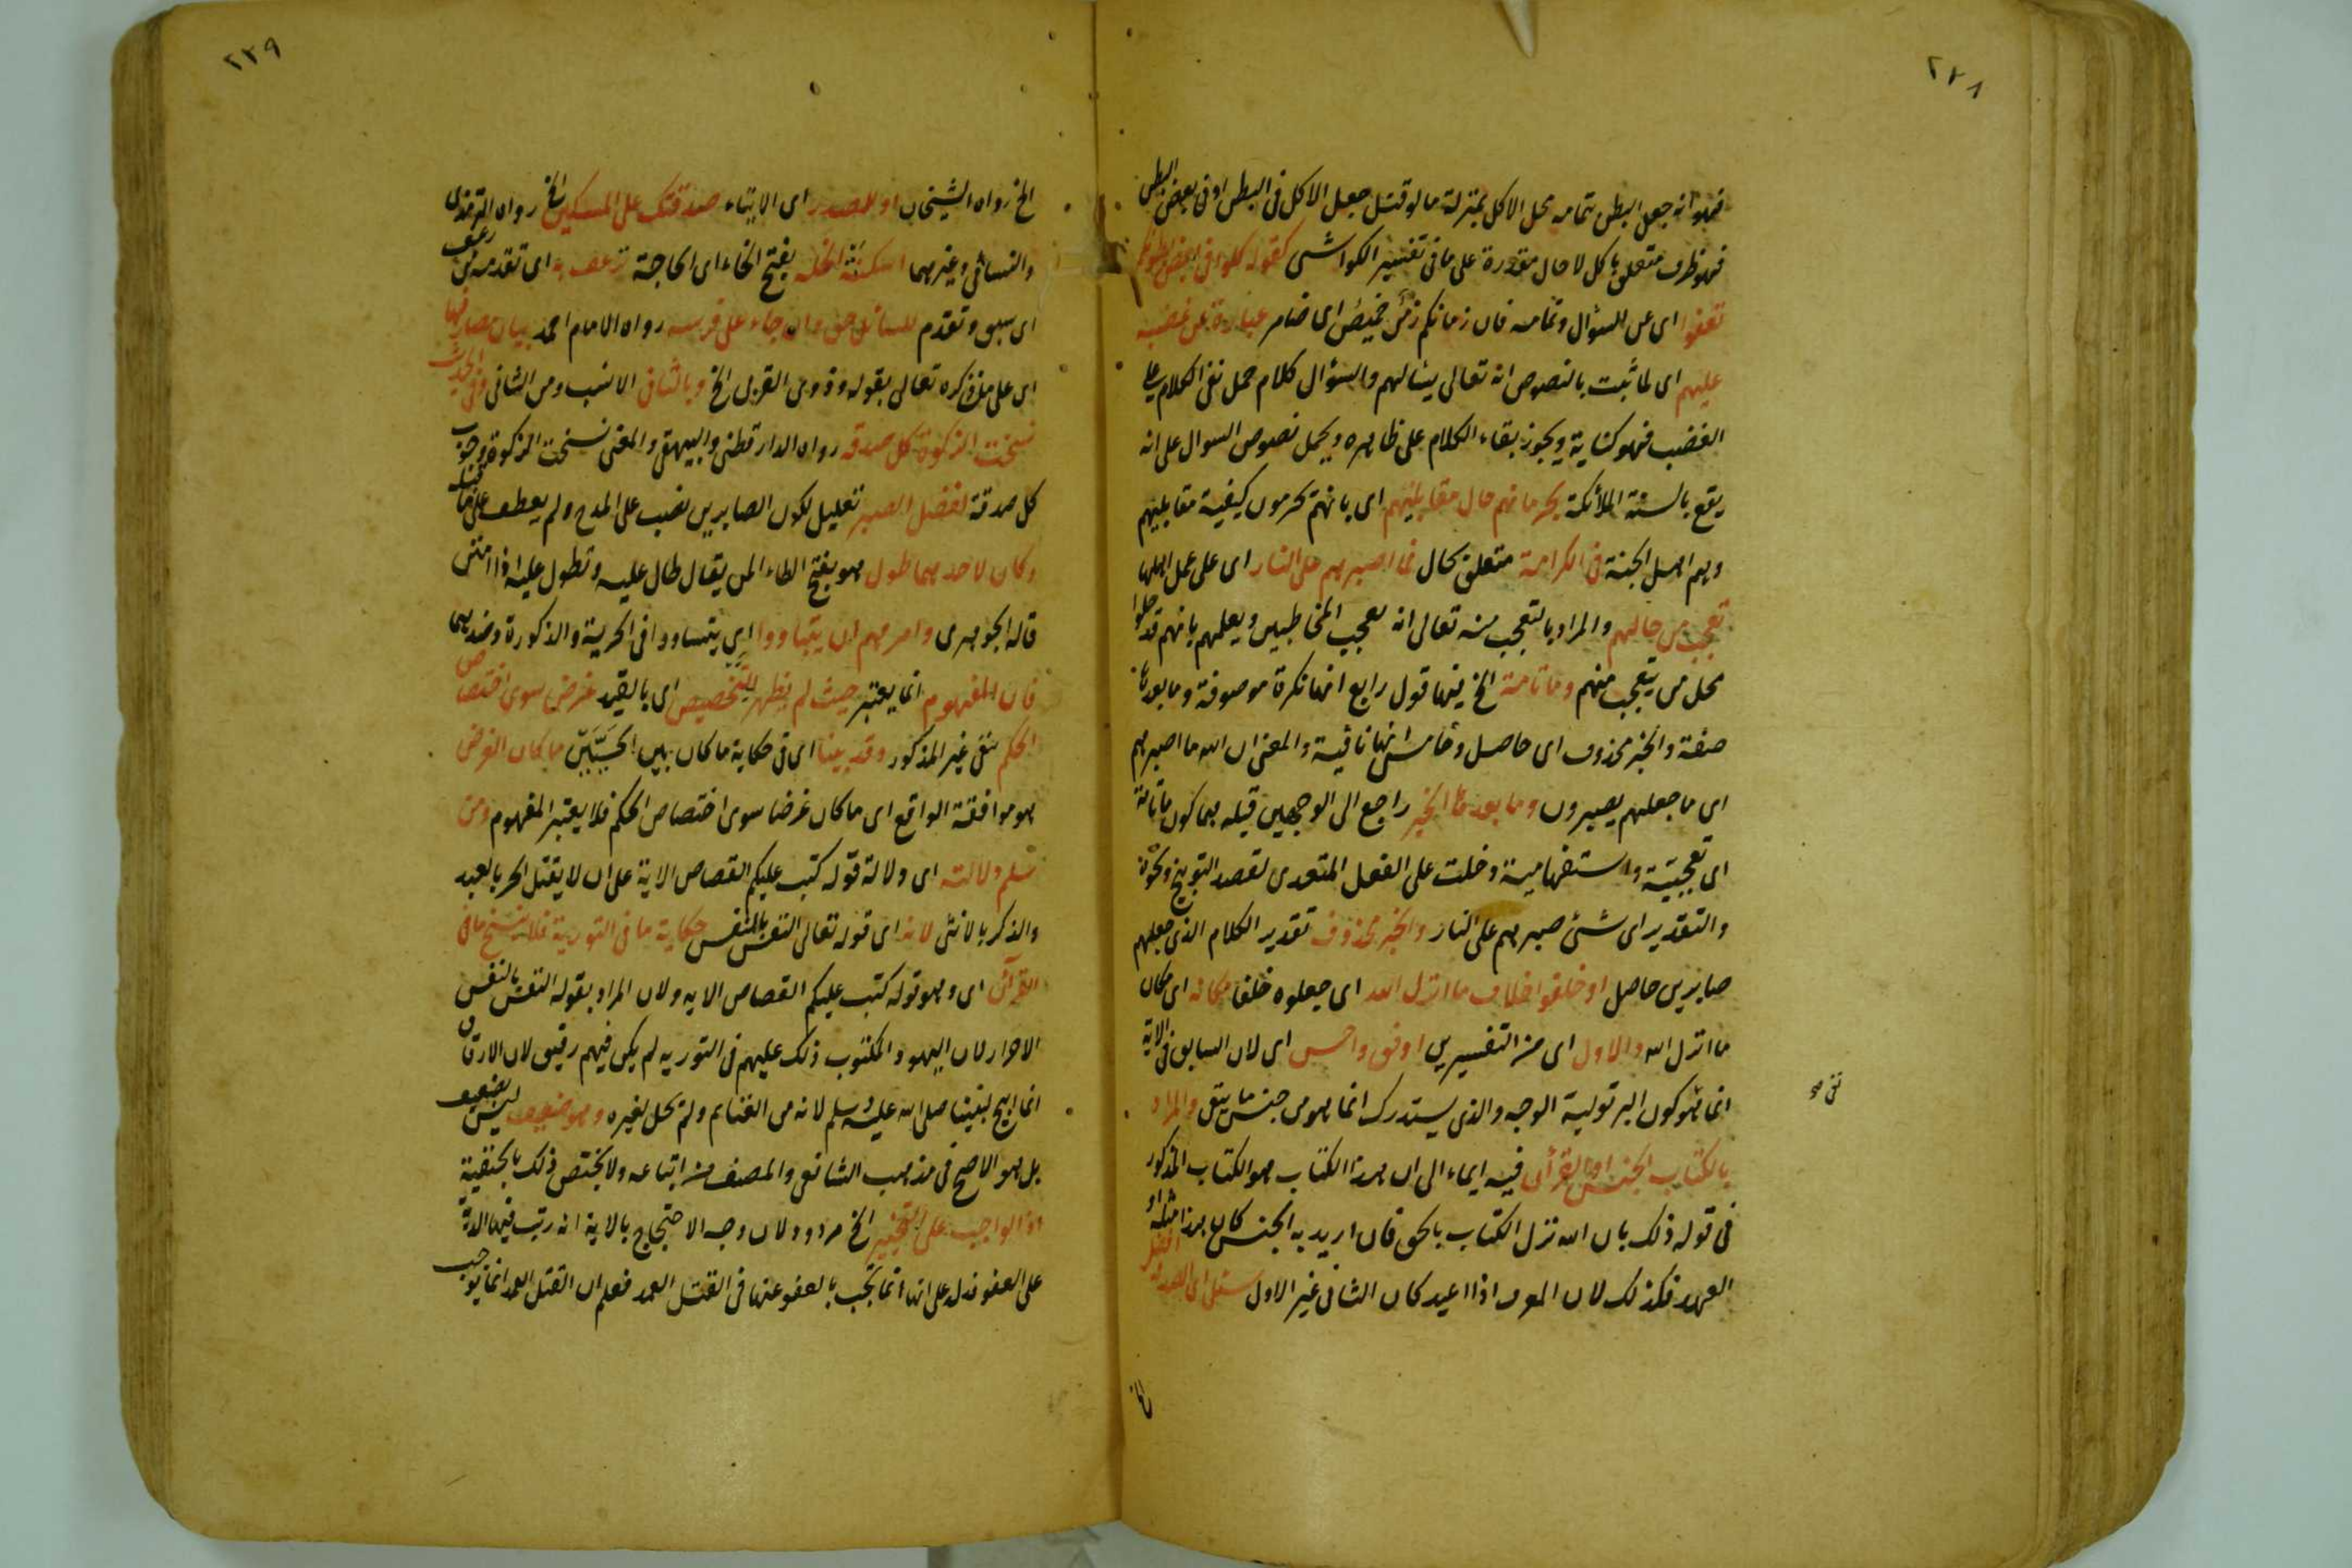 ٢٢٨
فهو انه جعل البطن بتمامه محل الاكل بمنزلة ما لو قيل جعل الاكل فى البطن او فى بعض البطن
فهو ظرف متعلق باكل لا حال مقدرة على ما فى تفسير الكواشى كقوله كلوا فى بعض بطونكم
تعفوا اى عن السؤال وتمامه فان زمانكم زمن خميص اى ضامر عبارة عن غضبه
عليهم اى لما ثبت بالنصوص انه تعالى يسألهم والسؤال كلام حمل نفى الكلام على
الغضب فهو كناية ويجوز بقاء الكلام على ظاهره ويحمل نصوص السوال على انه
يقع بالسنة الملائكة بحرمانهم حال مقابليهم اى بانهم محرمون كيفية مقابليهم
وهم اهل الجنة فى الكرامة متعلق بحال فما اصبرهم على النار اى على عمل اهلها
تعجب من حالهم والمراد بالتعجب منه تعالى انه يعجب المخاطبين ويعلمهم بانهم قد حلوا
محل من يتعجب منهم وما تامة الخ فيها قول رابع انها نكرة موصوفة وما بعدها
صفة والخبر محذوف اى حاصل وخامس انها نافية والمعنى ان الله ما اصبرهم
اى ما جعلهم يصبرون وما بعدها الخبر راجع الى الوجهين قبله بها كون ما تامة
اى تعجبية واستفهامية دخلت على الفعل المتعدى لقصد التوبيخ ونحوه
والتقدير اى شئ صبرهم على النار والخبر محذوف تقدير الكلام الذى جعلهم
صابرين حاصل او خلفوا خلاف ما انزل الله اى جعلوه خلفا مكانه اى مكان
ما انزل الله والاول اى من التفسيرين اوفق واحسن اى لان السابق فى الاية
انما هو كون البر تولية الوجه والذى يستدرك انما هو من جنس ما ينفى والمراد
نفى صح
بالكتاب الجنس او القرأن فيه ايماء الى ان هذا الكتاب هو الكتاب المذكور
فى قوله ذلك بان الله نزل الكتاب بالحق فان اريد به الجنس كان هذا مثله او
العهد فكذلك لان المعرف اذا اعيد كان الثانى غير الاول سئل اى الصدقة افضل
الخ
٢٢٩
الخ رواه الشيخان او للمصدر اى الايتاء صدقتك على المسكين الخ رواه الترمذى
والنسائى وغيرهما اسكنته الخلة بفتح الخاء اى الحاجة ترعف به اى تقدمه من رعف
اى سبق وتقدم للسائل حق وان جاء على فرسه رواه الامام احمد بيان مصارفها
اى على ما ذكره تعالى بقوله ذوى القربى الخ وبالثانى الانسب ومن الثانى وفى الحديث
نسخت الزكوة كل صدقه رواه الدارقطنى والبيهقى والمعنى نسخت الزكوة وجوب
كل صدقة لفضل الصبر تعليل لكون الصابرين نصب على المدح ولم يعطف على ما قبله
وكان لاحدهما طول هو بفتح الطاء المن يقال طال عليه وتطول عليه اذا امتن
قاله الجوهرى وامرهم ان يتباووا اى يتساووا فى الحرية والذكورة وضديهما
فان المفهوم انما يعتبر حيث لم يظهر للتخصيص اى بالقيد غرض سوى اختصاص
الحكم نفى غير المذكور وقد بينا اى فى حكاية ما كان بين الحيّين ما كان الغرض
هو موافقة الواقع اى ما كان غرضا سوى اختصاص الحكم فلا يعتبر المفهوم ومن
سلم دلالته اى دلالة قوله كتب عليكم القصاص الاية على ان لا يقتل الحر بالعبد
والذكر بالانثى لانه اى قوله تعالى النفس بالنفس حكاية ما فى التورية فلا ينسخ ما فى
القرآن اى وهو قوله كتب عليكم القصاص الايه ولان المراد بقوله النفس بالنفس
الاحرار لان اليهود المكتوب ذلك عليهم فى التوريه لم يكن فيهم رقيق لان الارقاق
انما ابيح لنبينا صلى الله عليه وسلم لانه من الغنايم ولم تحل لغيره وهو ضعيف ليس بضعيف
بل هو الاصح فى مذهب الشافعى والمصنف من اتباعه ولا يختص ذلك بالحنفية
اذ الواجب على التخيير الخ مردود لان وجه الاحتجاج بالاية انه رتب فيها الدية
على العفو فدل على انها انما تجب بالعفو عنها فى القتل العمد فعلم ان القتل العمد انما يوجب